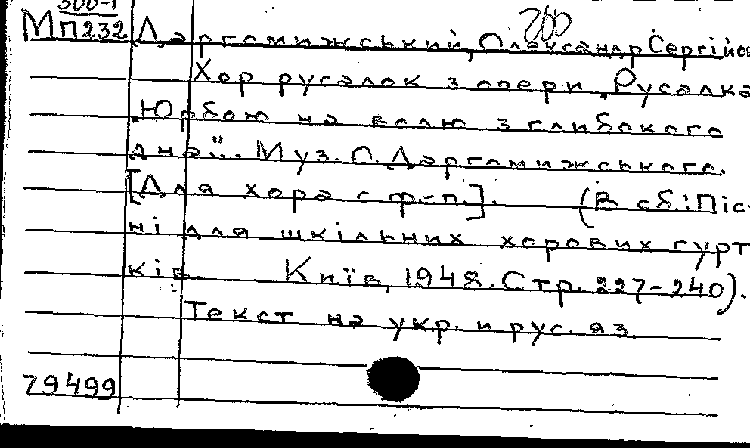 300-1
МП232 Даргомижський, Олександр Сергійов
200
Хор русалок з опери „Русалка
„Юрбою на волю з глибокого
дна"... Муз. О. Даргомижського.
[Для хора с ф-п.]. (В сб.: Піс-
ні для шкільних хорових гурт
ків. Київ, 1948. Стр. 227-240).
Текст на укр. и рус. яз.
79499